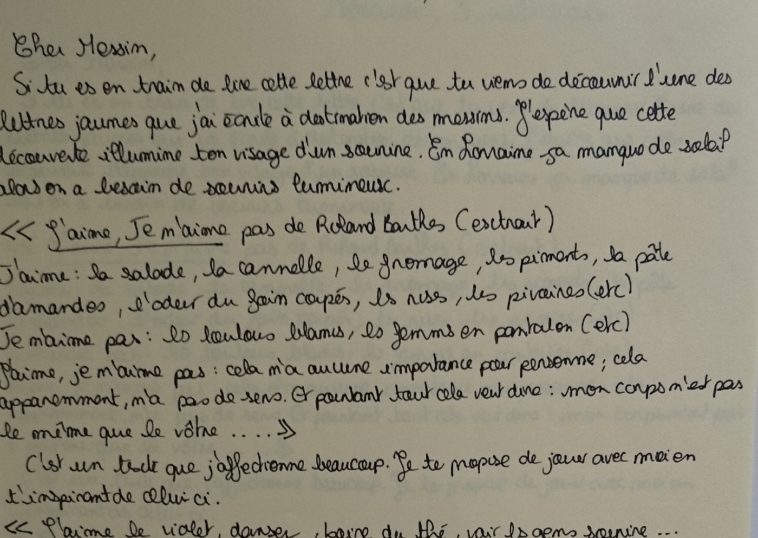 Cher Messin,
Si tu es en train de lire cette lettre c'est que tu viens de découvrir l'une des
lettres jaunes que j'ai écrite à destination des messins. J'espère que cette
découverte illumine ton visage d'un sourire. En Lorraine sa manque de soleil
alors on a besoin de sourires lumineux.
<< J'aime, Je n'aime pas de Roland Barthes (esctrait)
J'aime : la salade, la cannelle, le fromage, les piments, la pâte
d'amandes, l'odeur du foin coupés, les roses, les pivoines (etc)
Je n'aime pas : les loulous blancs, les femmes en pantalon (etc)
J'aime, je n'aime pas : cela n'a aucune importance pour personne ; cela
apparemment, n'a pas de sens. Et pourtant tout cela veut dire : mon corps n'est pas
le même que le vôtre .... >>
C'est un texte que j'affectionne beaucoup. Je te propose de jouer avec moi en
t'inspirant de celui ci.
<< J'aime le violet, danser, boire du thé, voir les gens sourire ...